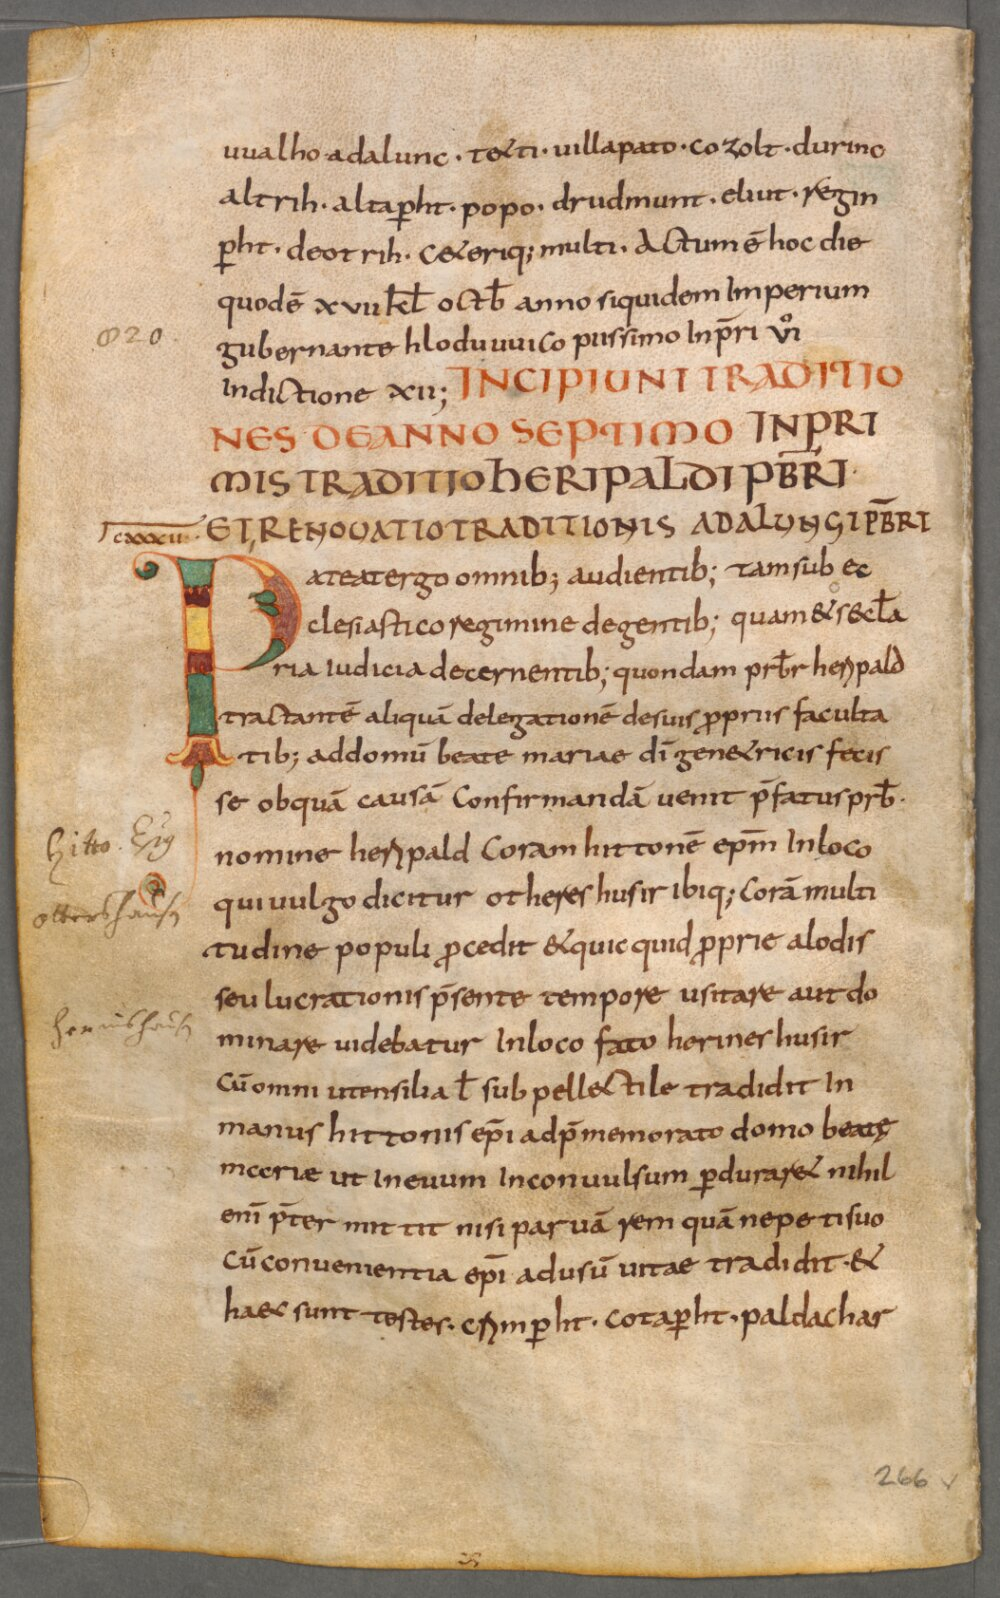 uualho·adalunc·tetti·uillapato·cozolt·durinc
altrih·altaꝑht·popo·drudmunt·eliut·regin
ꝑht·deotrih·Ceteriq;multi·Actum ē hoc die
quod ē xvii kƚ octƀ anno siquidem Imperium
820
gubernante hloduuuico piissimo Inp̄ri vıͦ
Indictione xii; INCIPIUNT TRADITIO
NES DE ANNO SEPTIMO INPRI
MIS TRADITIO HERIPALDI PB̄RI·
cxxxcii· ET RENOUATIO TRADITIONIS ADALUNGI PB̄RI
Pateatergo omnib; audientib; tam sub ec
clesiastico regimine degentib; quam & secƚa
ria Iudicia decernentib; quondam prƀr heripald
tractantē aliquā delegationē desuis ꝓpriis faculta
tib; addomū beate mariae dī gen&ricis fecis
se obquā causā Confirmandā uenit p̄fatus prƀ·
hitto. Ep̄s
nomine heripald Coram hittonē ep̄m Inloco
quiuulgo dicitur otheres husir ibiq; Corā multi
ottershausn
tudine populi ꝓcedit & quicquid ꝓprie alodis
seu lucrationis p̄sente tempore usitare aut do
herrnshausn
minare uidebatur Inloco fato hermeshusir
Cū omni utensilia ƚ subpellectile tradidit In
manus hittonis ep̄i ad p̄memorato domo beatę
mccriae ut Ineuum Inconuulsum ꝑdurar& nihil
enī p̄ter mittit nisi paruā rem quā nepeti suo
Cū conuenientia ep̄i adusū uitae tradidit·&
haec sunt testes·erimꝑht·cotaꝑht·paldachar
266 v